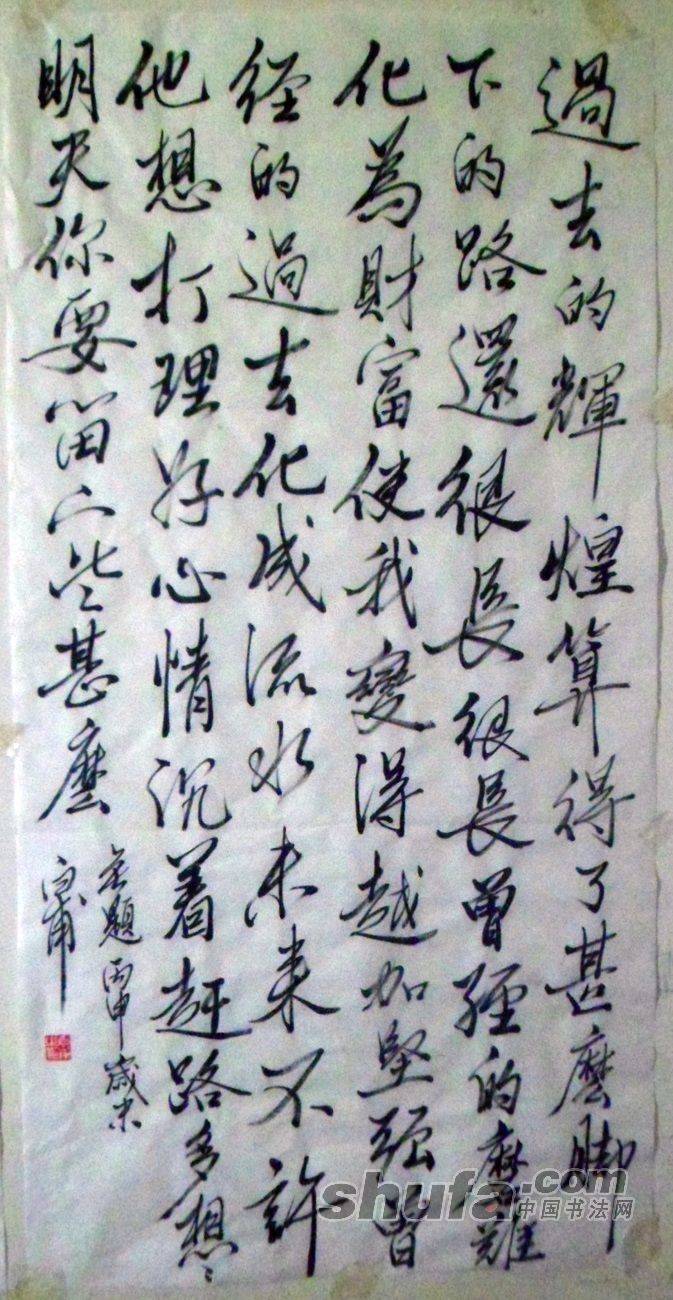 過去的輝煌算得了甚麼脚
下的路還很長很長曾經的磨難
化為財富使我變得越加堅强曾
經的過去化成流水未来不許
他想打理好心情沉着赶路多想想
明天你要留下些甚麼
无題 丙申歲末
白甫
shufa.com
中国书法网